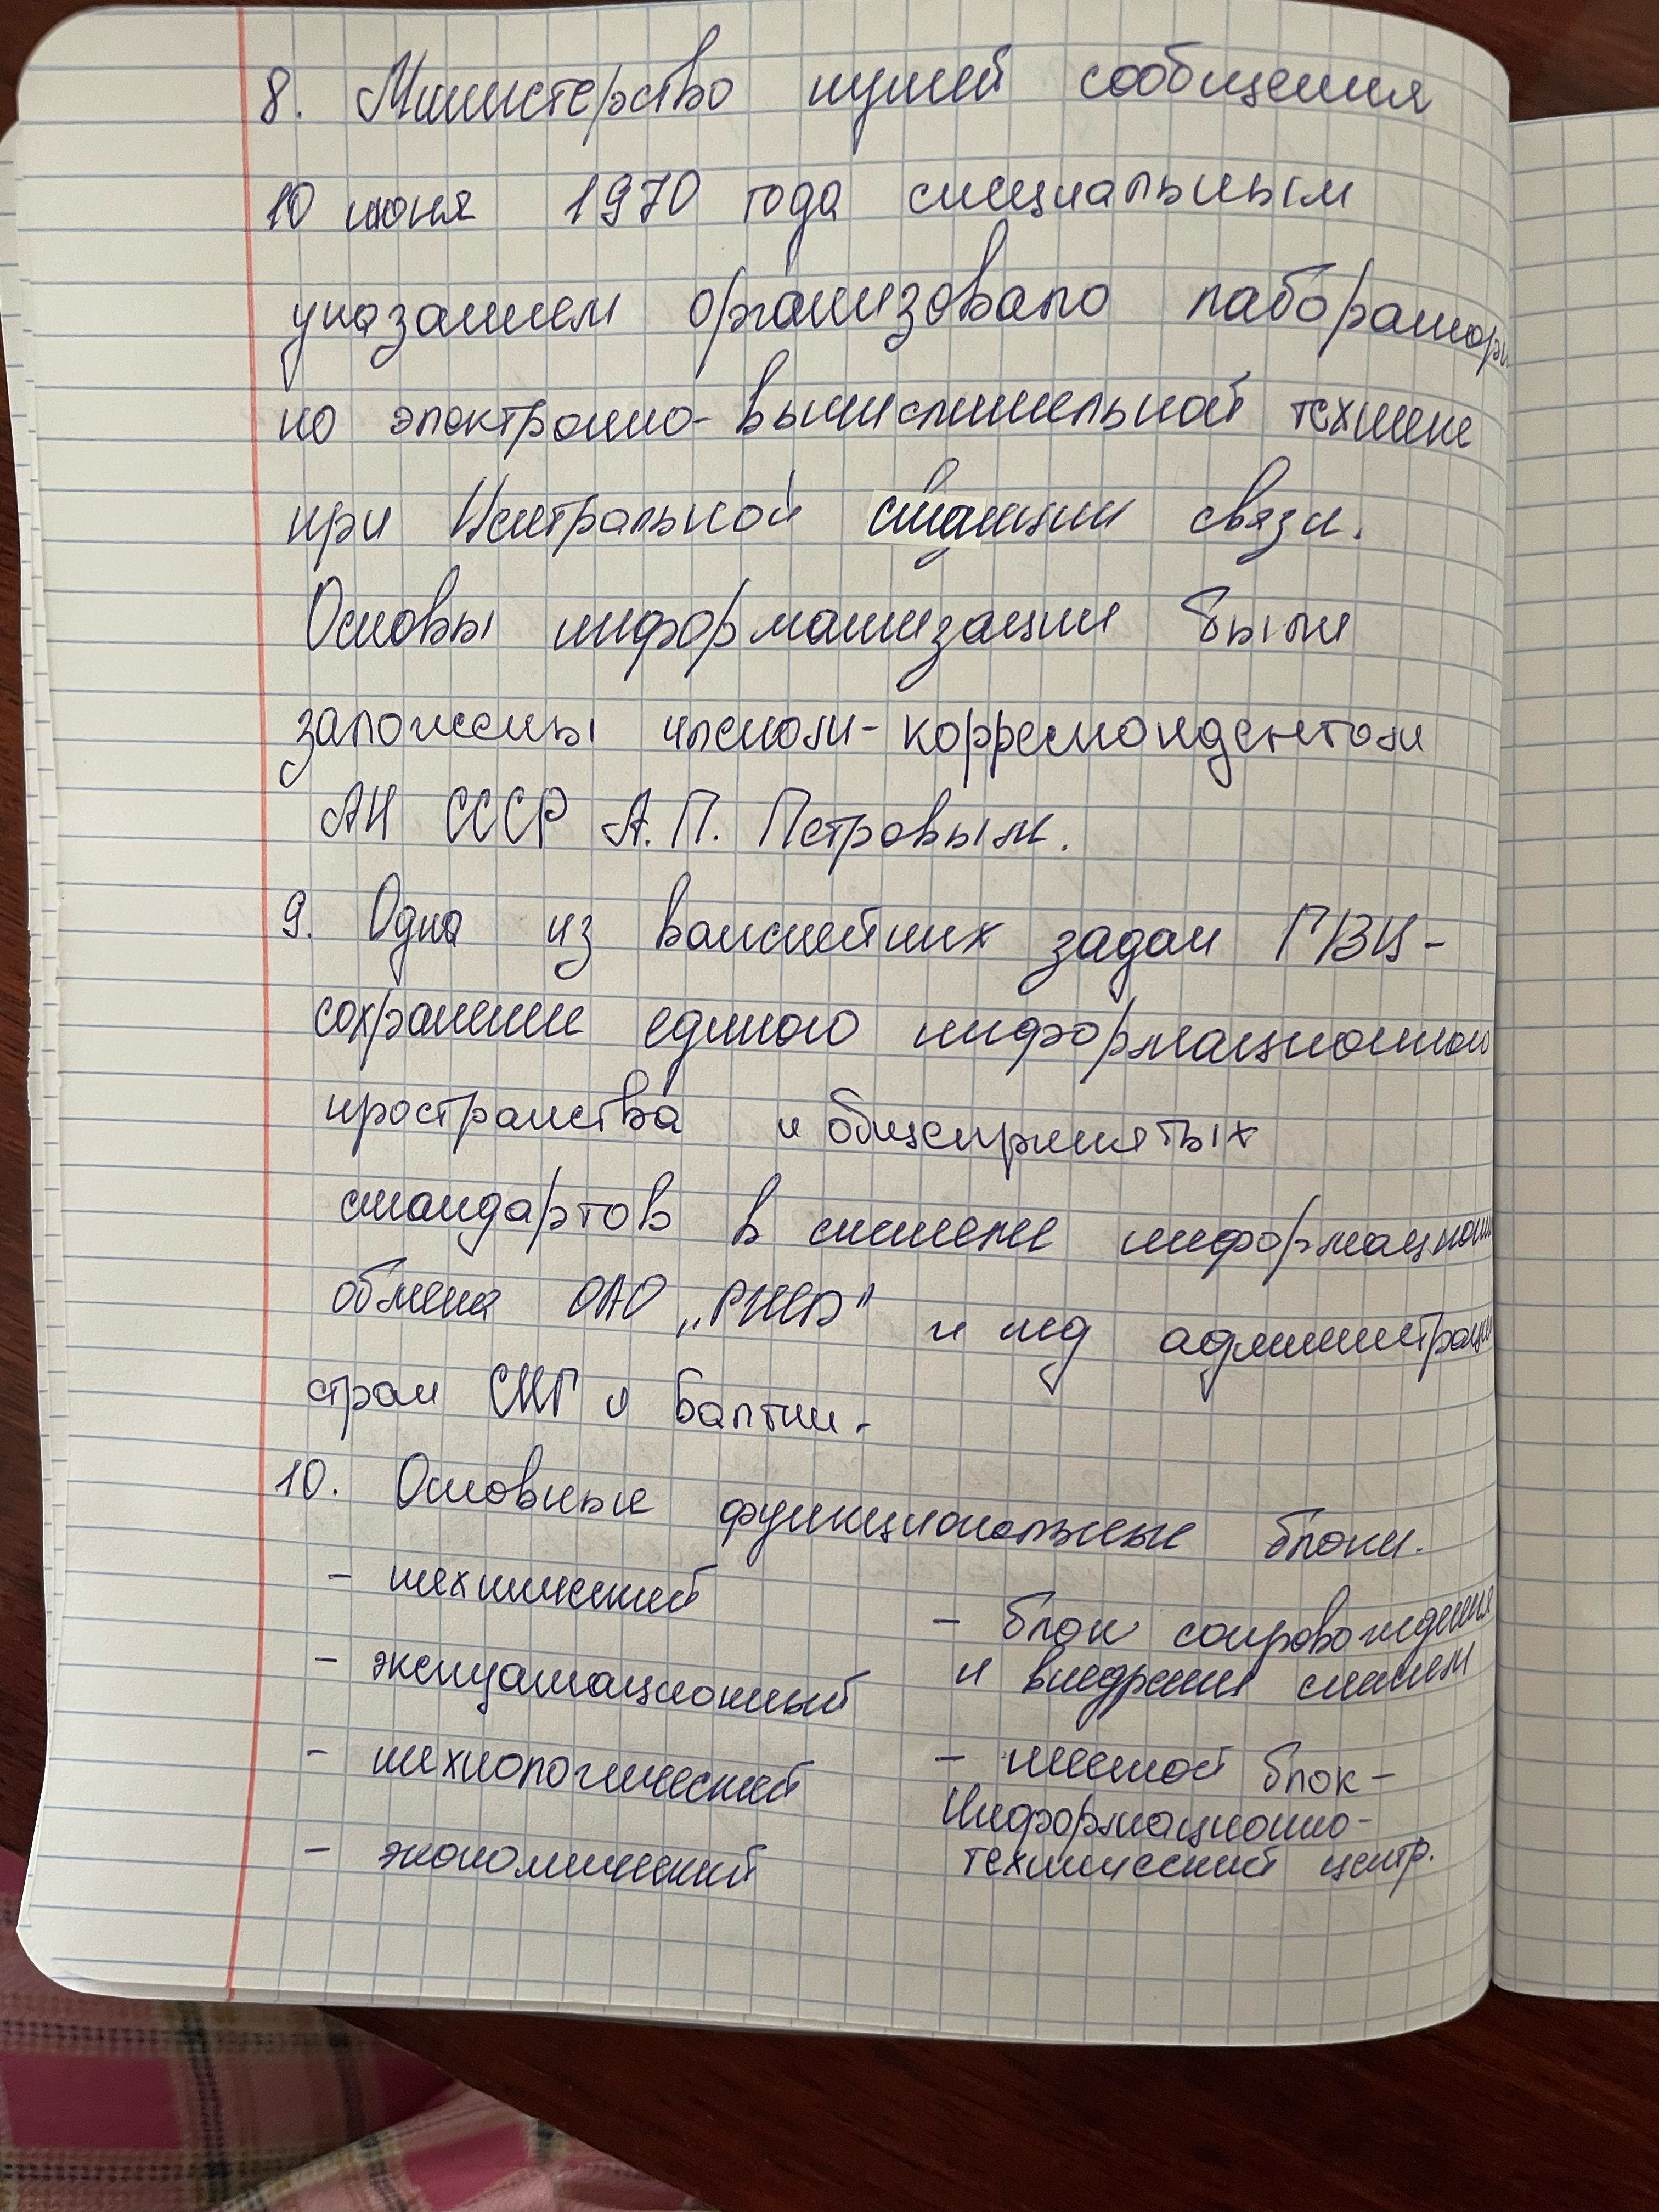 8. Министерство путей сообщения
10 июня 1970 года специальным
указанием организовало лаборатори
по электронно-вычислительной технике
при Центральной станции связи.
Основы информатизации были
заложены членом-корреспондентом
АН СССР А.П. Петровым.
9. Одна из важнейших задач ГВЦ -
сохранение единого информационного
пространства и общепринятых
стандартов в системе информационн
обмена ОАО „РЖД" и жд администраци
стран СНГ и Балтии.
10. Основные функциональные блоки.
- технический
- эксплуатационный
- технологический
- экономический
- блок сопровождения
и внедрения систем
- шестой блок -
Информационно-
технический центр.